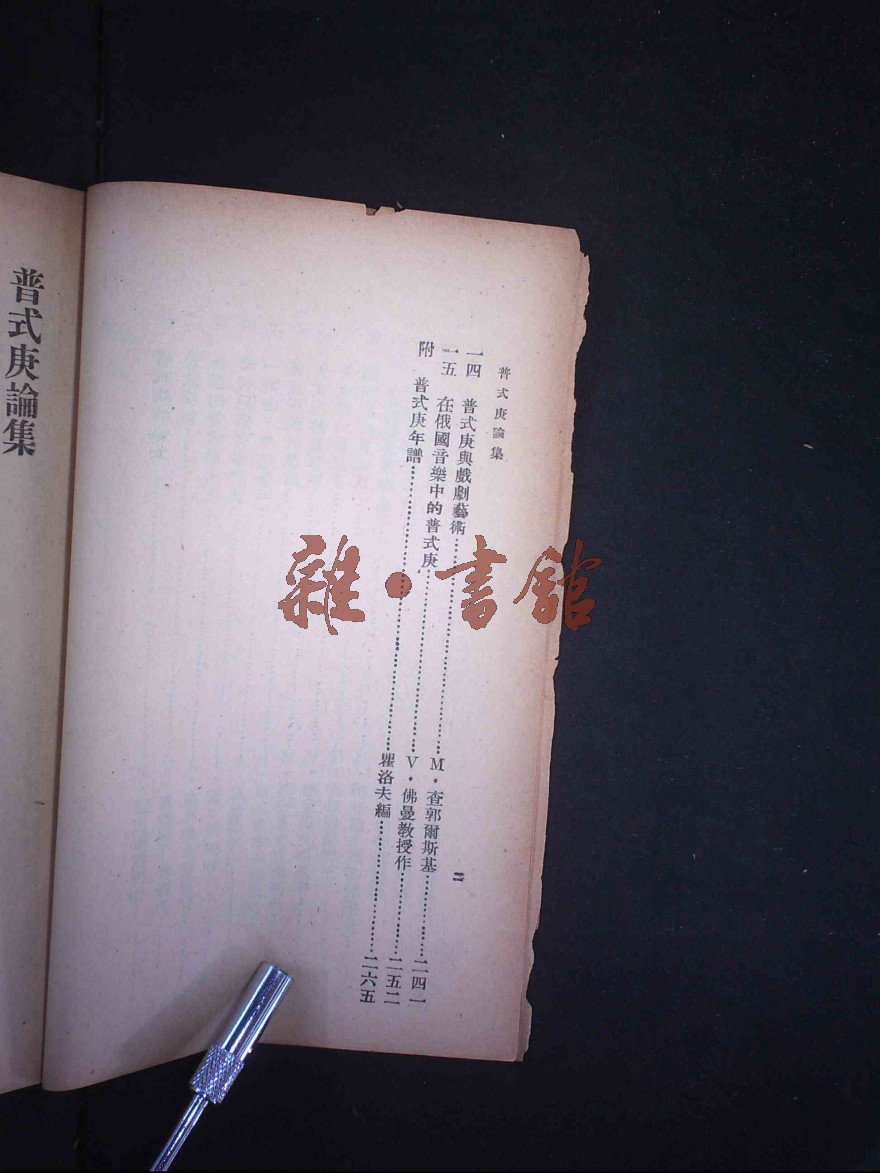 普式庚論集
一四 普式庚與戲劇藝術……M·查郭爾斯基……二四一
一五 在俄國音樂中的普式庚……V·佛曼教授作……二五二
附 普式庚年譜……瞿洛夫編……二六五
二
普式庚論集
雜·書館